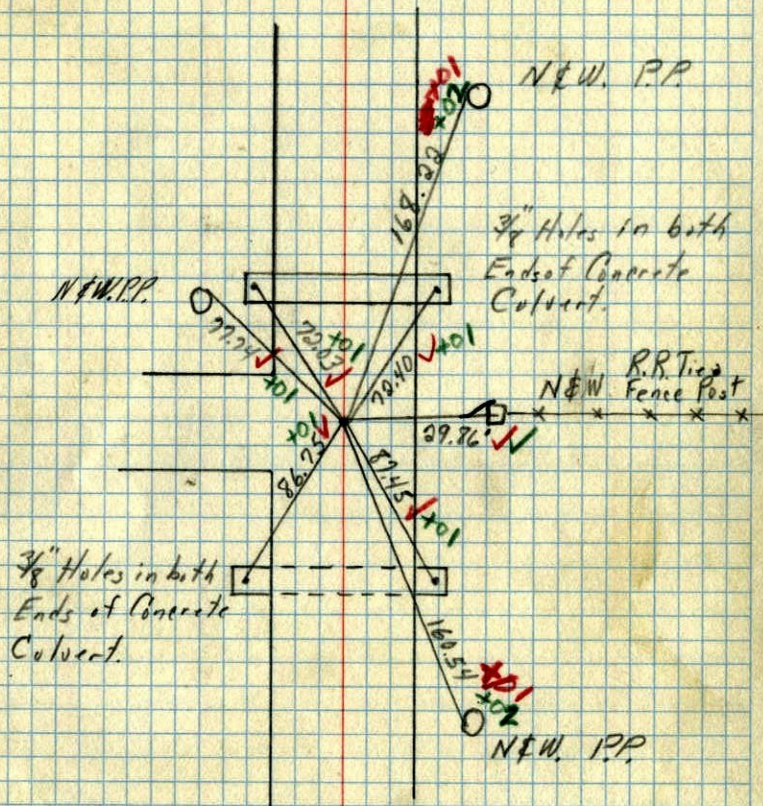 N&W. P.P.
+01
+02
168.22
3/8" Holes in both
Ends of Concrete
Culvert.
N&W. P.P.
77.74
+01
72.03
+01
72.40
+01
N&W
R.R. Ties
Fence Post
29.86'
+01
86.75
87.45
+01
3/8" Holes in both
Ends of Concrete
Culvert.
160.54
+01
+02
N&W. P.P.